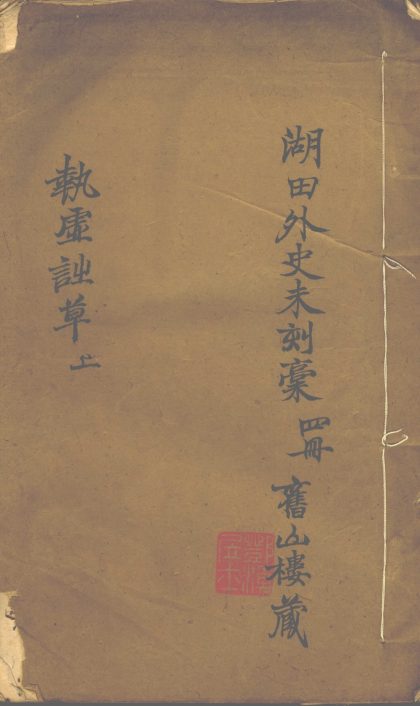 湖田外史未刻稾 四冊 舊山樓藏
執虛詘草 上